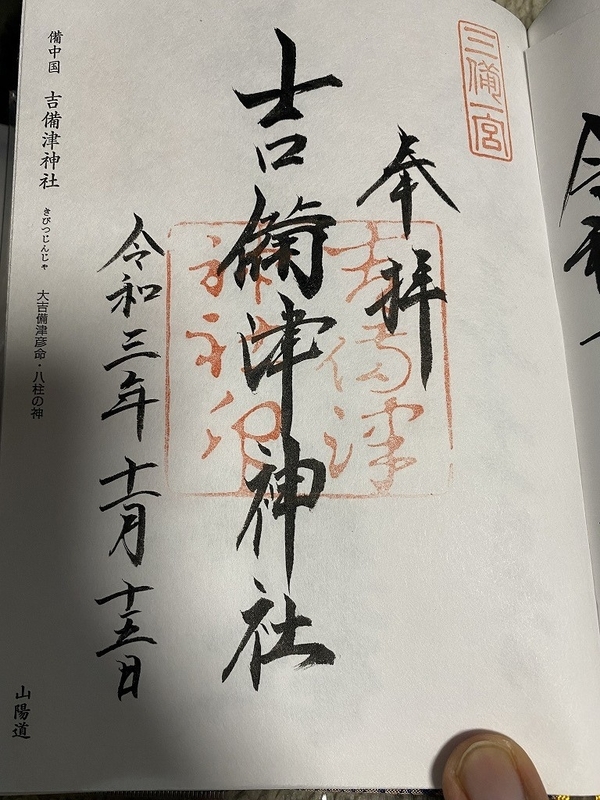 三備一宮
奉拝
吉備津神社
吉備津
神社印
令和三年十一月十五日
備中国 吉備津神社 きびつじんじゃ 大吉備津彦命・八柱の神
山陽道